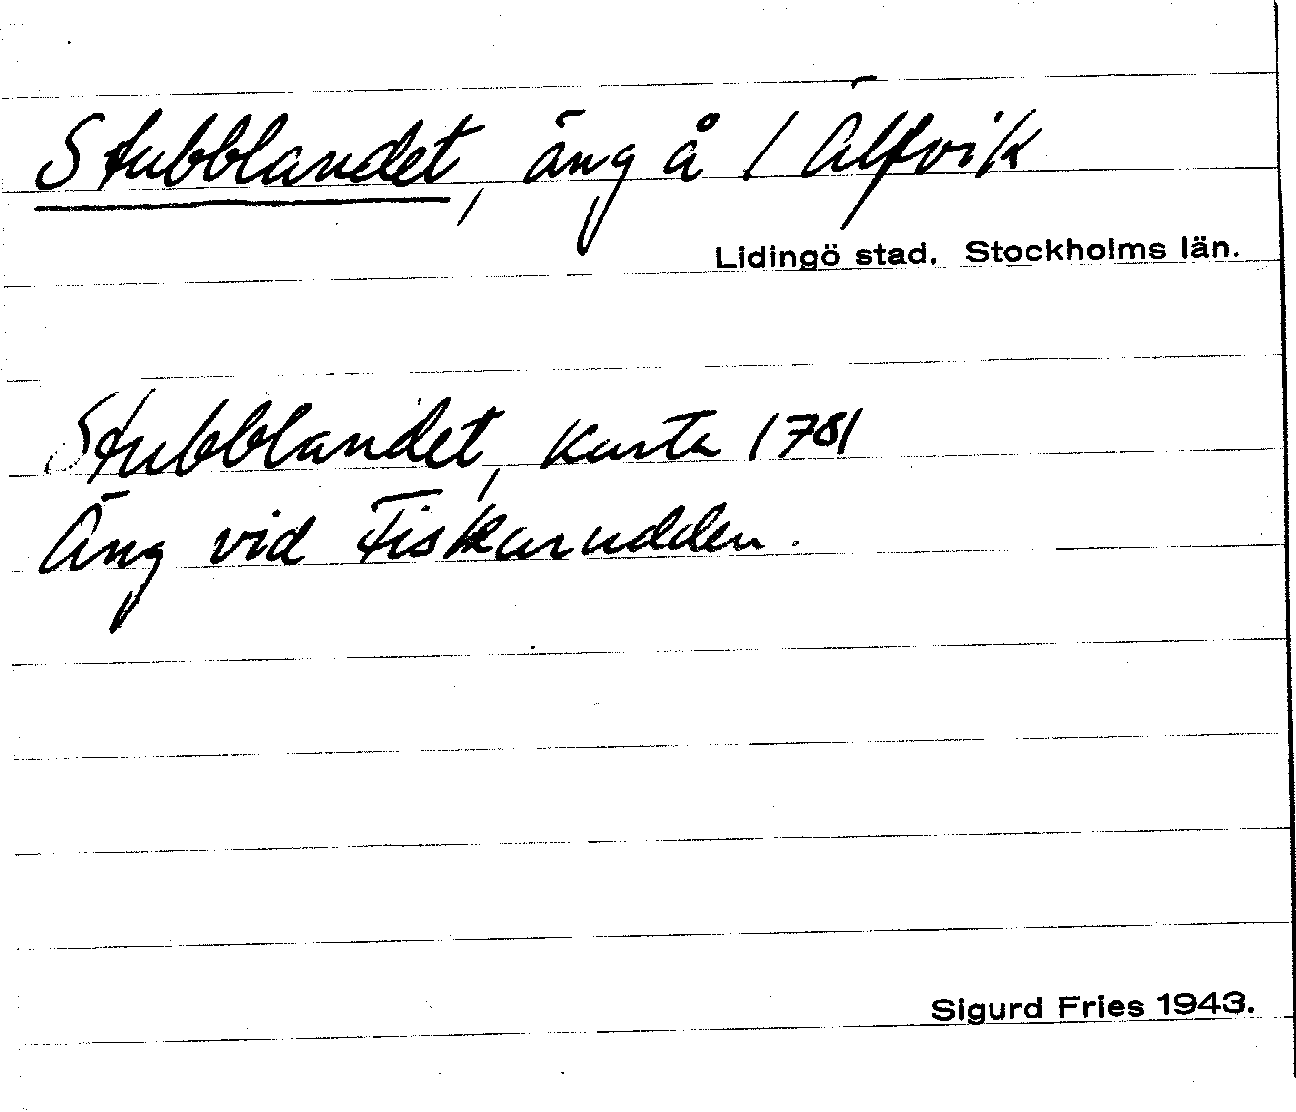 Stubblandet, äng å 1 Älfvik
Lidingö stad. Stockholms län.
Stubblandet, karta 1781
Äng vid Fiskarudden.
Sigurd Fries 1943.